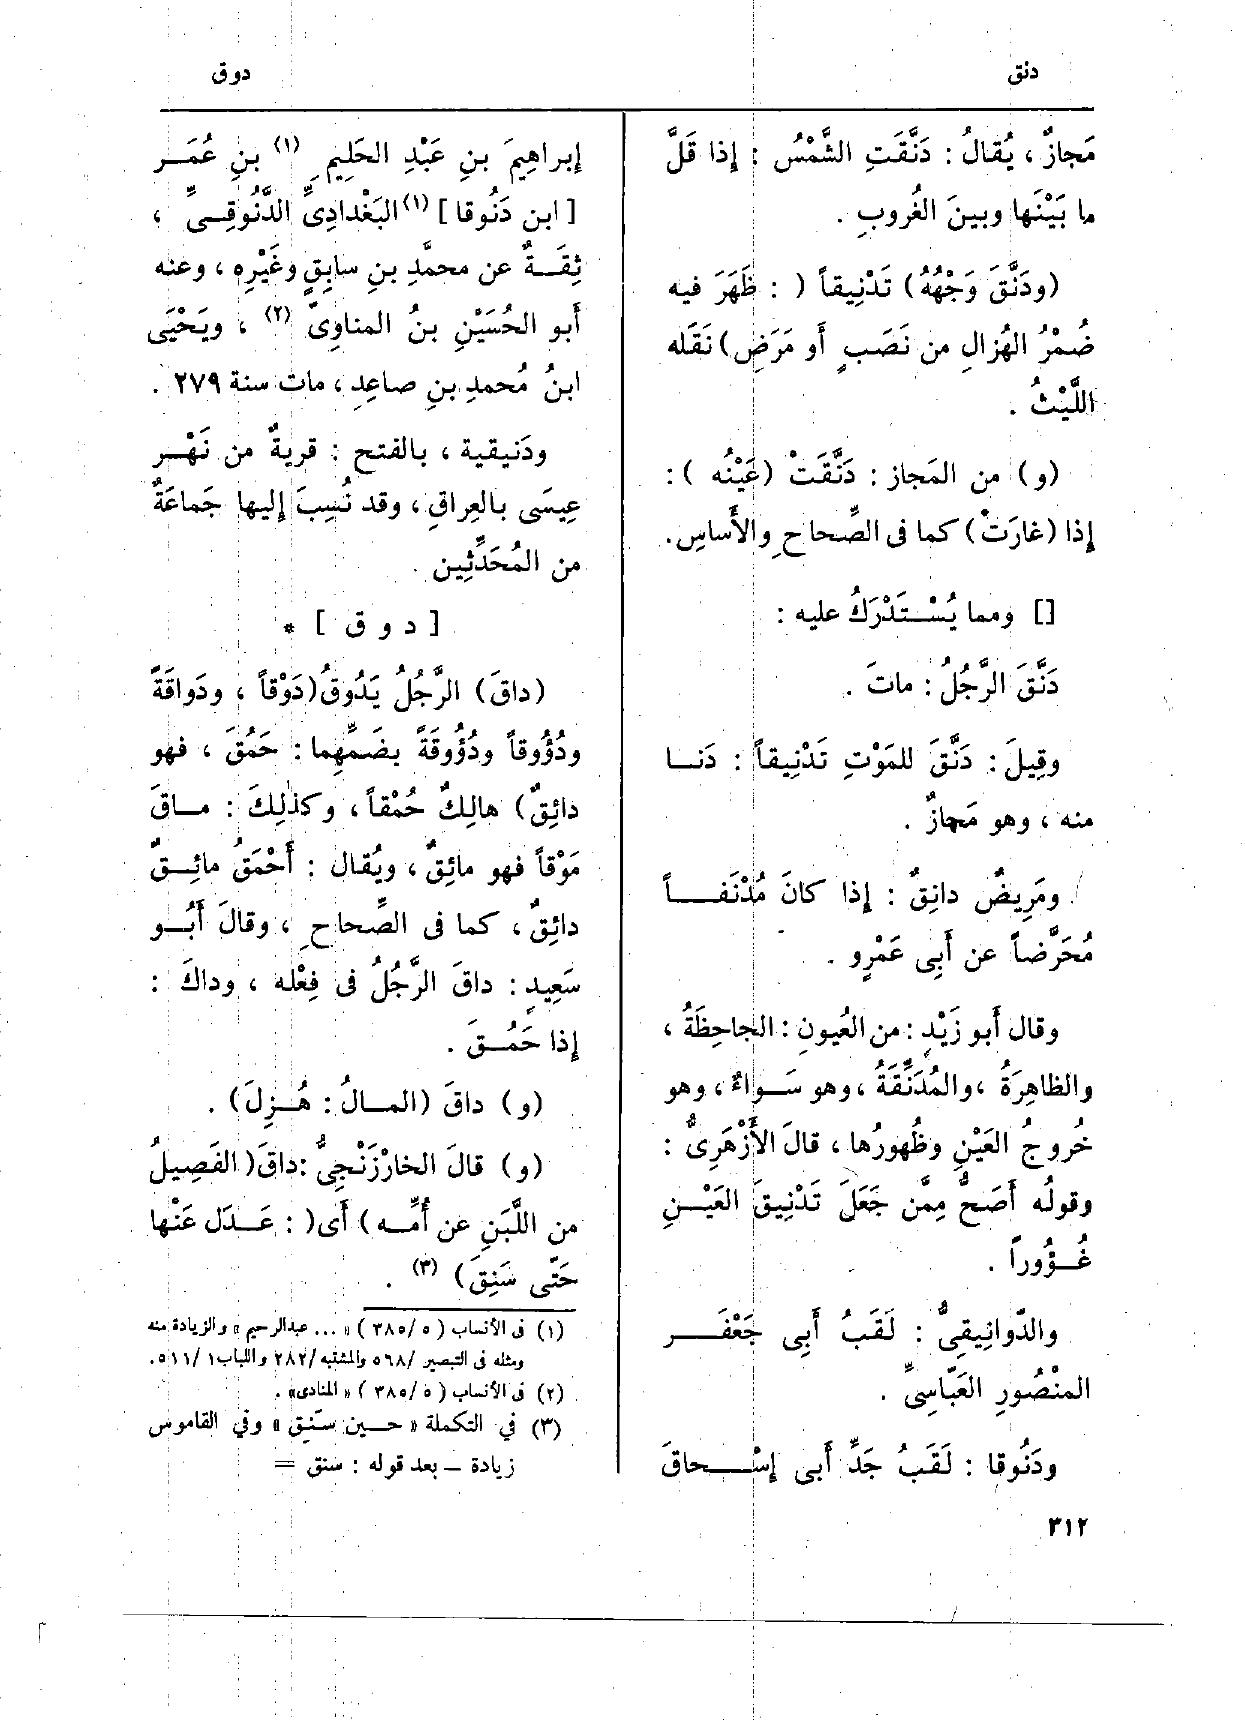 دنق
دوق
مَجازٌ ، يُقالُ : دَنَّقَتِ الشَّمْسُ : إذا قَلَّ
ما بَيْنَها وبينَ الغُروبِ .
(ودَنَّقَ وَجْهُهُ) تَدْنِيقاً ( : ظَهَرَ فيه
ضُمْرُ الهُزالِ من نَصَبٍ أو مَرَضٍ) نَقَله
اللَّيْثُ .
(و) من المَجاز : دَنَّقَتْ (عَيْنُه ) :
إذا (غارَتْ) كما فى الصِّحاحِ والأَساسِ.
[] ومما يُسْتَدْرَكُ عليه :
دَنَّقَ الرَّجُلُ : ماتَ .
وقِيلَ : دَنَّقَ للمَوْتِ تَدْنِيقاً : دَنـا
منه ، وهو مَجازٌ .
ومَرِيضٌ دانِقٌ : إذا كانَ مُدْنَفـاً
مُحَرَّضاً عن أَبِى عَمْرٍو .
وقال أَبو زَيْدٍ : من العُيونِ : الجاحِظَةُ ،
والظاهِرَةُ ، والمُدَنِّقَةُ ، وهو سَـواءٌ ، وهو
خُروجُ العَيْنِ وظُهورُها ، قالَ الأَزْهَرِىُّ :
وقولُه أَصَحُّ مِمَّن جَعَلَ تَدْنِيقَ العَيْـنِ
غُـؤُوراً .
والدَّوانِيقِىُّ : لَقَبُ أَبِى جَعْفَـر
المنْصُورِ العَبّاسِىِّ .
ودَنُوقا : لَقَبُ جَدِّ أَبى إسْـحاقَ
إبراهِيمَ بنِ عَبْدِ الحَلِيمِ (١) بنِ عُمَـر
[ ابن دَنُوقا ] (١) البَغْدادِىِّ الدَّنُوقِـىِّ ،
ثِقَـةٌ عن محمَّدِ بنِ سابِقٍ وغَيْرِه ، وعنه
أَبو الحُسَيْنِ بنُ المناوِىّ (٢) ، ويَحْيَى
ابنُ مُحمدِ بنِ صاعِدٍ ، مات سنة ٢٧٩ .
ودَنيقية ، بالفتح : قريةٌ من نَهْـر
عِيسَى بالعِراقِ ، وقد نُسِبَ إليها جَماعَةٌ
من المُحَدِّثِين .
[ د و ق ] *
(داقَ) الرَّجُلُ يَدُوقُ (دَوْقاً ، ودَواقَةً
ودُؤُوقاً ودُؤُوقَةً بضَمِّهِما : حَمُقَ ، فهو
دائِقٌ) هالِكٌ حُمْقاً ، وكذٰلِكَ : مـاقَ
مَوْقاً فهو مائِقٌ ، ويُقال : أَحْمَقُ مائِـقٌ
دائِقٌ ، كما فى الصِّحاحِ ، وقالَ أَبُـو
سَعِيدٍ : داقَ الرَّجُلُ فى فِعْله ، وداكَ :
إذا حَمُـقَ .
(و) داقَ (المـالُ : هُـزِلَ) .
(و) قالَ الخارْزَنْجِىُّ : داقَ (الفَصِيلُ
من اللَّبَنِ عن أُمِّـه ) أَى ( : عَـدَل عَنْها
حَتَّى سَنِقَ) (٣) .
(١) فى الأنساب ( ٥/ ٣٨٥ ) « ... عبدالرحيم » والزيادة منه
ومثله فى التبصير /٥٦٨ والمشتبه /٢٨٢ واللباب١ /٥١١.
(٢) فى الأنساب ( ٥/ ٣٨٥ ) « المنادى» .
(٣) في التكملة « حـين سَنِق » وفي القاموس
زيادة ـ بعد قوله : سنق =
٣١٢